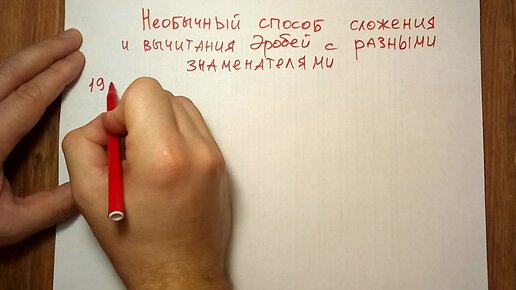 Необычный способ сложения
и вычитания дробей с разными
знаменателями
19